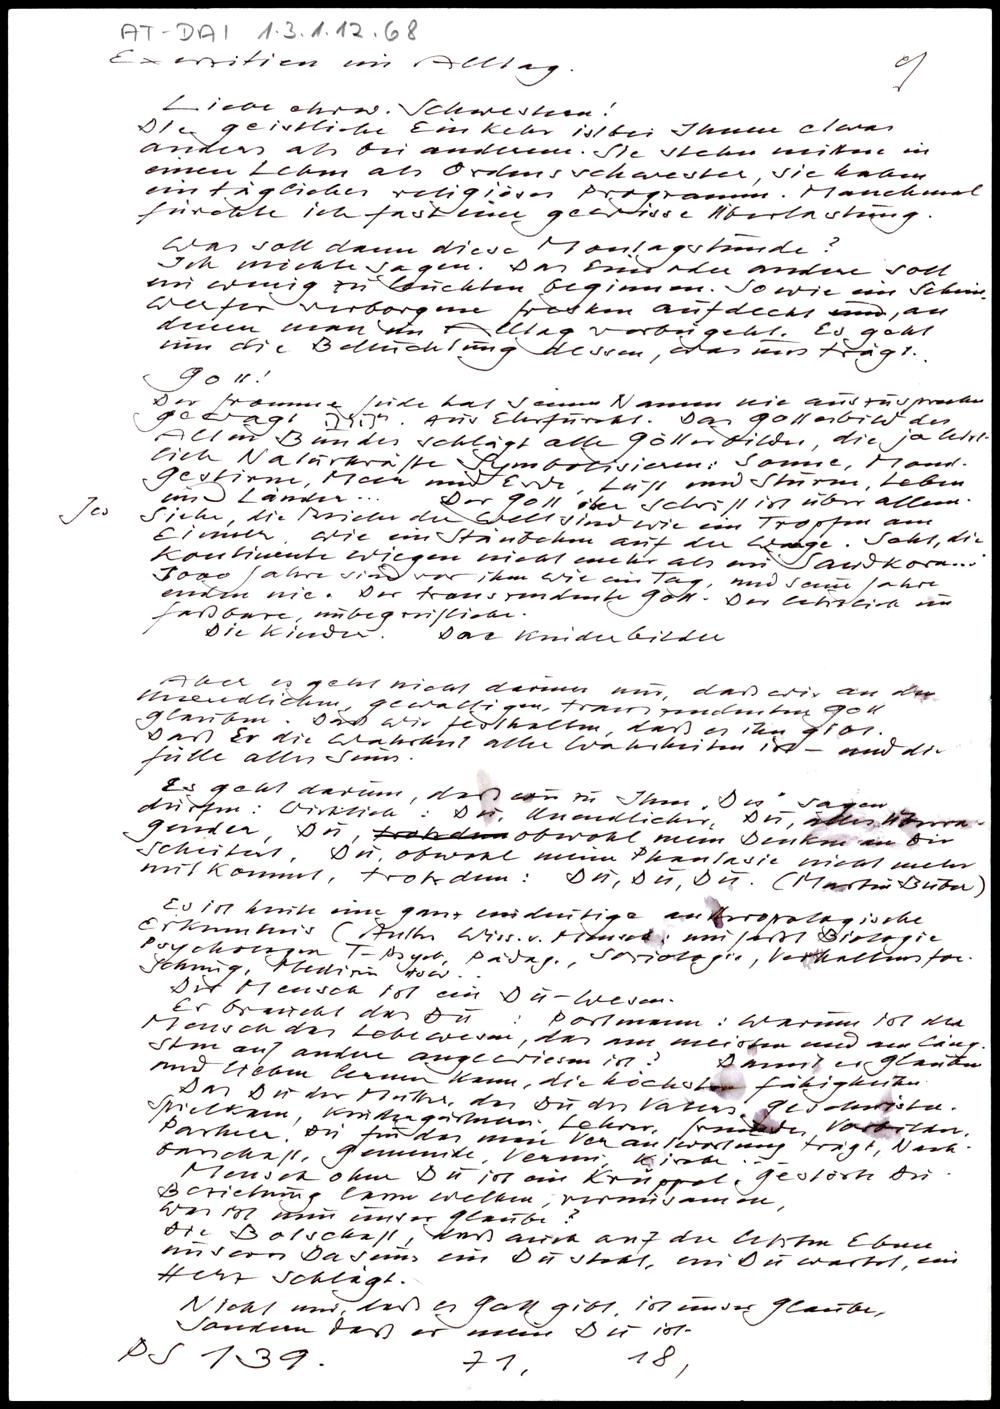 AT-DAI 1.3.1.12.68
Exerzitien im Alltag.
Liebe ehrw. Schwestern!
Die geistliche Einkehr ist bei Ihnen etwas
anders als bei anderen. Sie stehn mitten in
einem Leben als Ordensschwester, sie haben
ein tägliches religiöses Programm. Manchmal
fürchte ich fast eine gewisse Überlastung.
Was soll dann diese Montagstunde?
Ich möchte sagen. Das Ein oder andere soll
ein wenig zu leuchten beginnen. So wie ein Schein-
werfer verborgene Fresken aufdeckt und, an
denen man im Alltag vorbeigeht. Es geht
um die Beleuchtung dessen, was uns trägt.
Gott!
Der fromme Jude hat seinen Namen nie auszusprechen
gewagt. Aus Ehrfurcht. Das Gottesbild des
Alten Bundes schlägt alle Götterbilder, die ja letzt-
lich Naturkräfte symbolisieren: Sonne, Mond.
Gestirne, Meer und Erde, Luft und Sturm, Leben
und Länder... Der Gott der Schrift ist über allem.
Jes Siehe, die Reiche der Welt sind wie ein Tropfen am
Eimer, wie ein Stäubchen auf der Waage. Seht, die
Kontinente wiegen nicht mehr als ein Sandkorn...
1000 Jahre sind vor ihm wie ein Tag, und seine Jahre
enden nie. Der transzendente Gott. Der letztlich un
faßbare, unbegreifliche.
Die Kinder. Das Kinderbilder
Aber es geht nicht darum nur, daß wir an den
unendlichen, gewaltigen, transzendenten Gott
glauben. Daß wir festhalten, daß es ihn gibt.
Daß Er die Wahrheit aller Wahrheiten ist – und die
Fülle alles Seins.
Es geht darum, daß wir zu Ihm „Du" sagen
dürfen: Wirklich: Du, Unendlicher, Du, alles Überra-
gender, Du, trotzdem obwohl mein Denken an Dir
scheitert, Du, obwohl meine Phantasie nicht mehr
mitkommt, trotzdem: Du, Du, Du. (Martin Buber)
Es ist heute eine ganz eindeutige anthropologische
Erkenntnis (Anthr. Wiss. v. Mensch: umfaßt Biologie
Psychologie T-Psych, Pädag., Soziologie, Verhaltensfor-
schung, Medizin usw...
Der Mensch ist ein Du-Wesen.
Er braucht das Du: Portmann: Warum ist der
Mensch das Lebewesen, das am meisten und am läng-
sten auf andere angewiesen ist? Damit er glauben
und lieben lernen kann, die höchsten Fähigkeiten.
Das Du der Mutter, das Du des Vaters, Geschwister.
Spielkam, Kindergärtnerin, Lehrer, Freunde, Vorbilder,
Partner. Du für das man Verantwortung trägt, Nach-
barschaft, Gemeinde, Verein, Kirche...
Mensch ohne Du ist ein Krüppel. Gestörte Du-
Beziehung kann welken, vereinsamen,
Was ist nun unser Glaube?
Die Botschaft, daß auch auf der letzten Ebene
unseres Daseins ein Du steht, ein Du wartet, ein
Herz schlägt.
Nicht nur, daß es Gott gibt, ist unser Glaube,
sondern daß er mein Du ist.
PS 139. 71, 18,